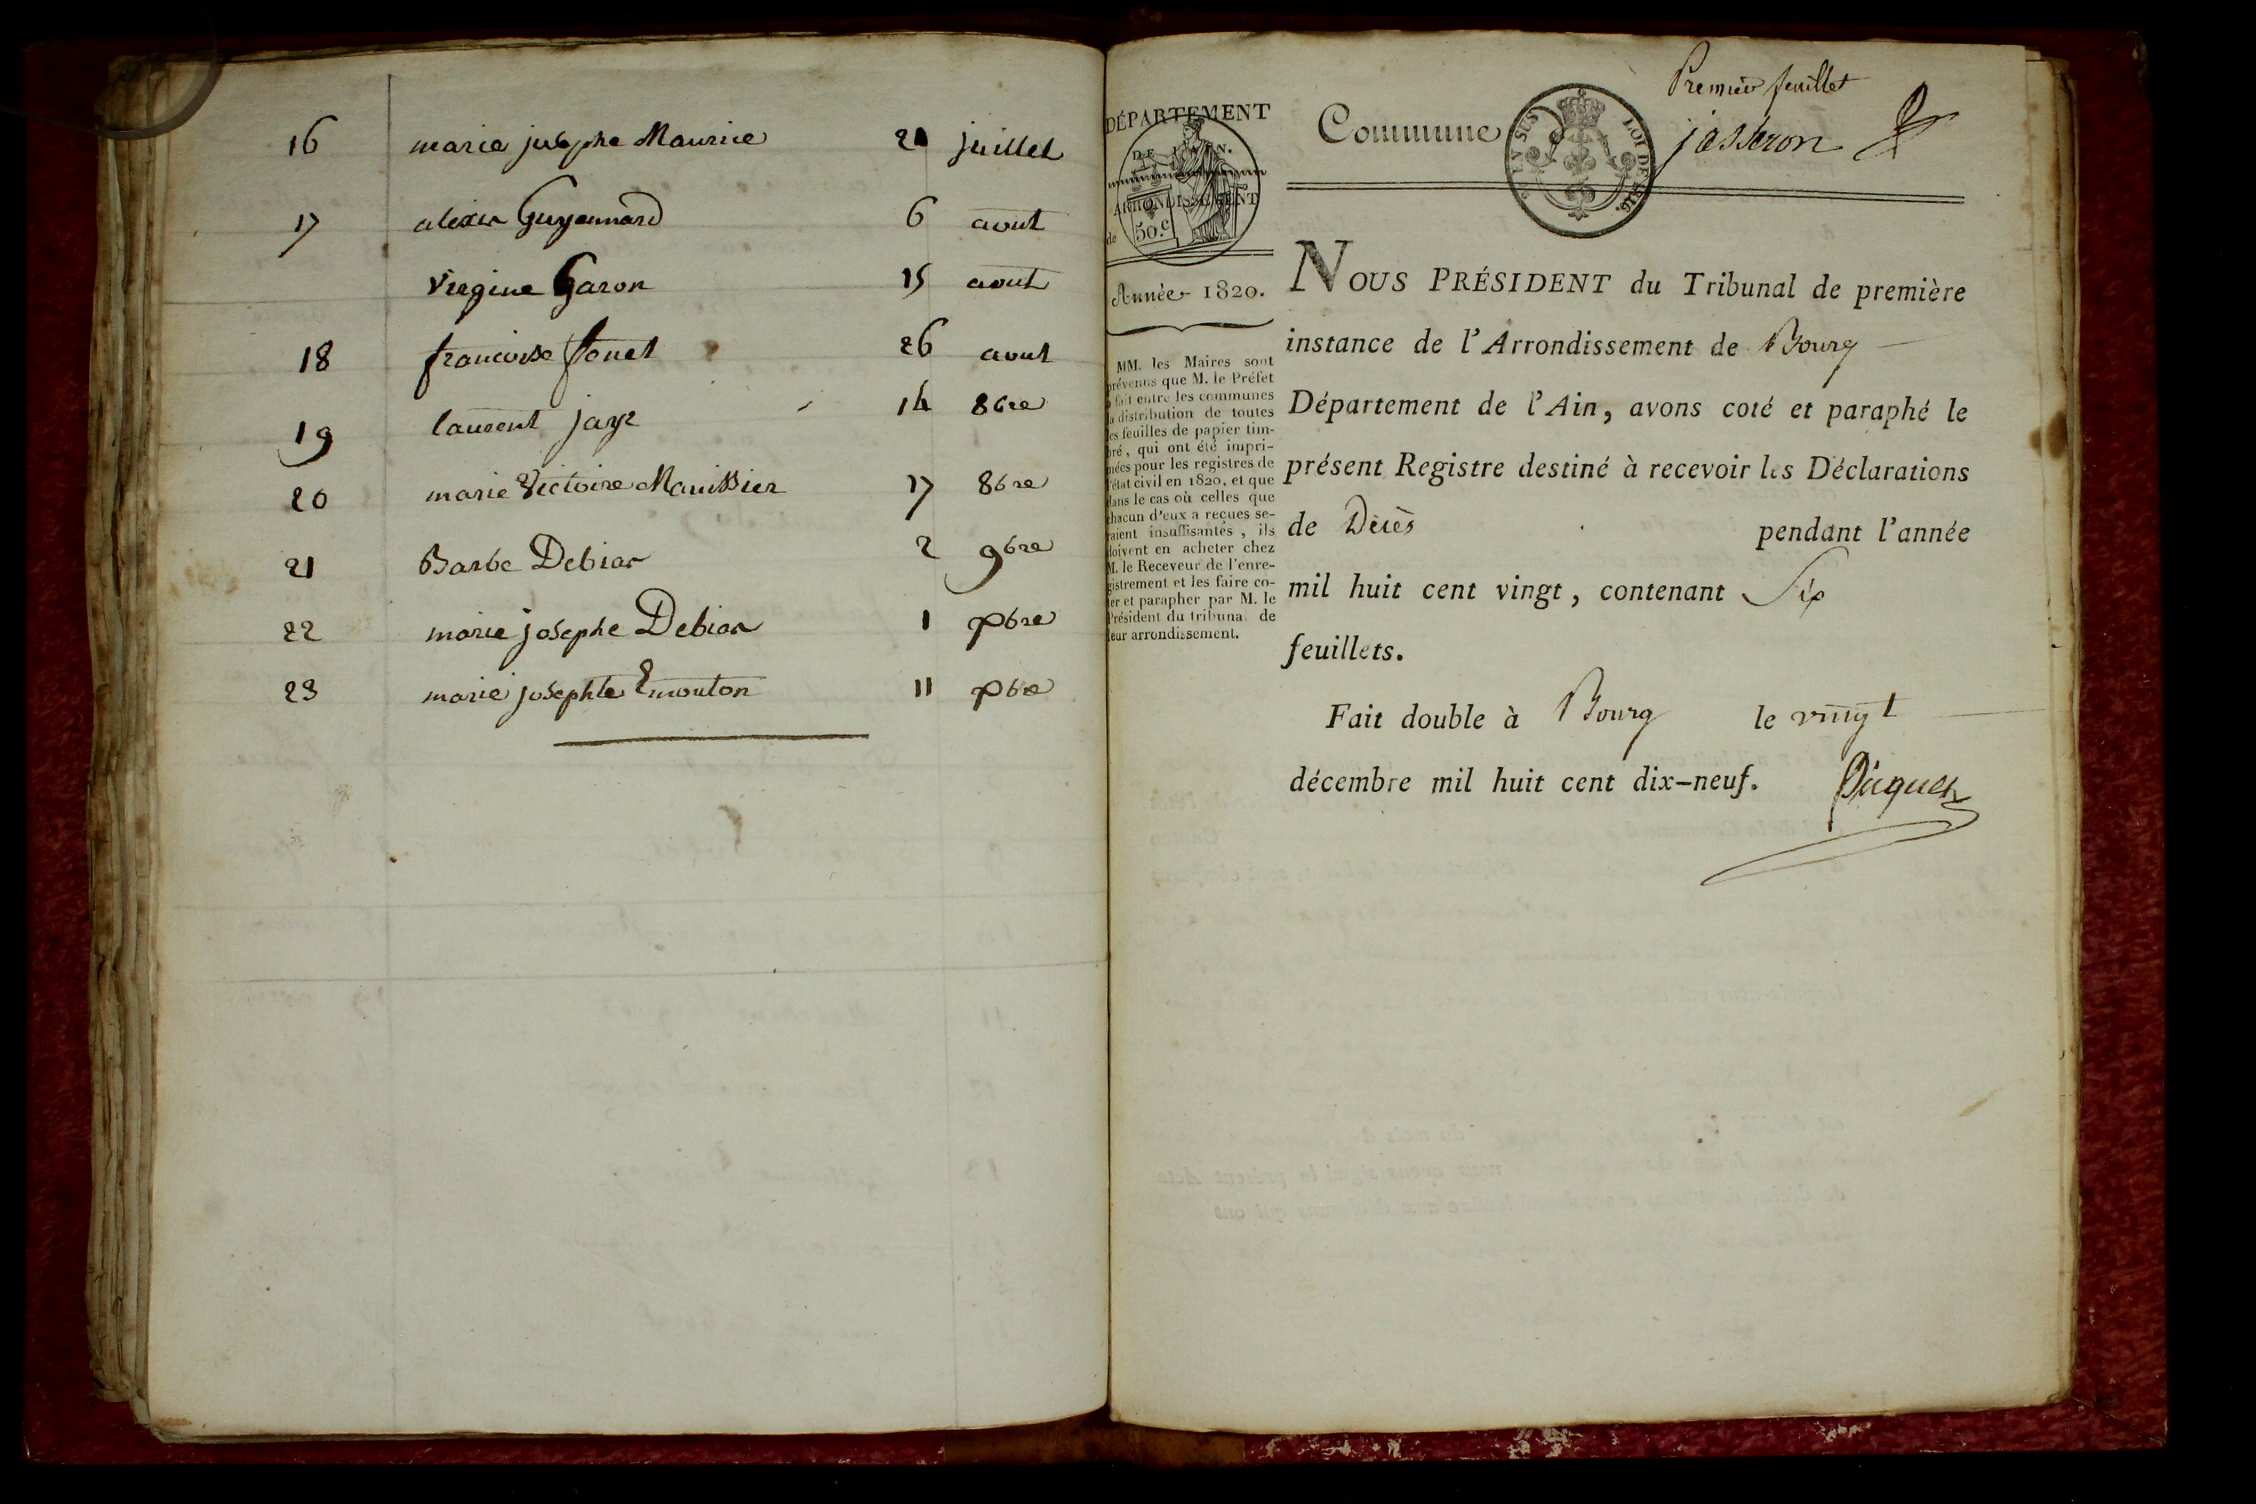 16 marie josephe Maurice 20 juillet
17 alexis Guyennard 6 aout
virgine Garon 15 aout
18 francoise fonet 26 aout
19 laurent jayr 14 8bre
20 marie Victoire Manissier 17 8bre
21 Barbe Debias 2 9bre
22 marie josephe Debias 1 Xbre
23 marie josephte Emonton 11 Xbre
Premier feuillet
DÉPARTEMENT
DE L'AIN.
ARRONDISSEMENT
de
50.c
Année 1820.
MM. les Maires sont
prévenus que M. le Préfet
a fait entre les communes
la distribution de toutes
les feuilles de papier tim-
bré, qui ont été impri-
mées pour les registres de
l'état civil en 1820, et que
dans le cas où celles que
chacun d'eux a reçues se-
raient insuffisantes, ils
doivent en acheter chez
M. le Receveur de l'enre-
gistrement et les faire co-
ter et parapher par M. le
Président du tribunal de
leur arrondissement.
Commune jasseron
EN SUS LOI DE 1816.
NOUS PRÉSIDENT du Tribunal de première
instance de l'Arrondissement de Bourg
Département de l'Ain, avons coté et paraphé le
présent Registre destiné à recevoir les Déclarations
de Décès pendant l'année
mil huit cent vingt, contenant Six
feuillets.
Fait double à Bourg le vingt
décembre mil huit cent dix-neuf.